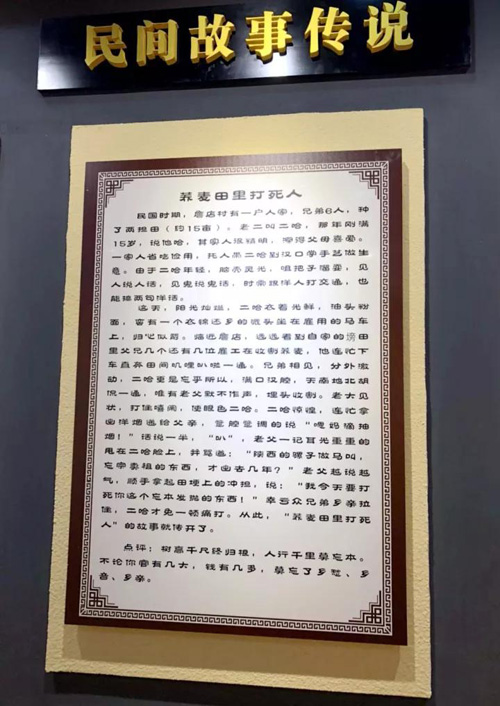 民间故事传说
荞麦田里打死人
民国时期，詹店村有一户人家，兄弟6人，种
了两担田（约15亩）。老二叫二哈，那年刚满
15岁，说他哈，其实人很精明，家得父母喜爱。
一家人省吃俭用，托人带二哈到汉口学手艺做生
意。由于二哈年轻，脑壳灵光，嘴把子溜耍，见
人说人话，见鬼说鬼话，时常跟洋人打交道，也
能捺两句洋话。
这天，阳光灿烂，二哈衣着光鲜，油头粉
面，蛮有一个衣锦还乡的派头坐在雇用的马车
上，归心似箭。临近詹店，远远看到自家的塝田
里父兄几个还有几位雇工在收割荞麦，他连忙下
车直奔田间叽哩叭啦一通。兄弟相见，分外激
动，二哈更是忘乎所以，满口汉腔，天南地北胡
侃一通，唯有老父默不作声，埋头收割。老大见
状，打住嘻闹，使眼色二哈。二哈惊惶，连忙拿
出洋烟递给父亲，蛮腔蛮调的说“嗯妈强抽
烟！”话说一半，“叭”，老父一记耳光重重的
甩在二哈脸上，并骂道：“陕西的骡子做马叫，
忘宗卖祖的东西，才出去几年？”老父越说越
气，顺手拿起田埂上的冲担，说：“我今天要打
死你这个忘本发猖的东西！”幸亏众兄弟乡亲拉
住，二哈才免一顿痛打。从此，“荞麦田里打死
人”的故事就传开了。
点评：树高千尺终归根，人行千里莫忘本。
不论你官有几大，钱有几多，莫忘了乡愁、乡
音、乡亲。